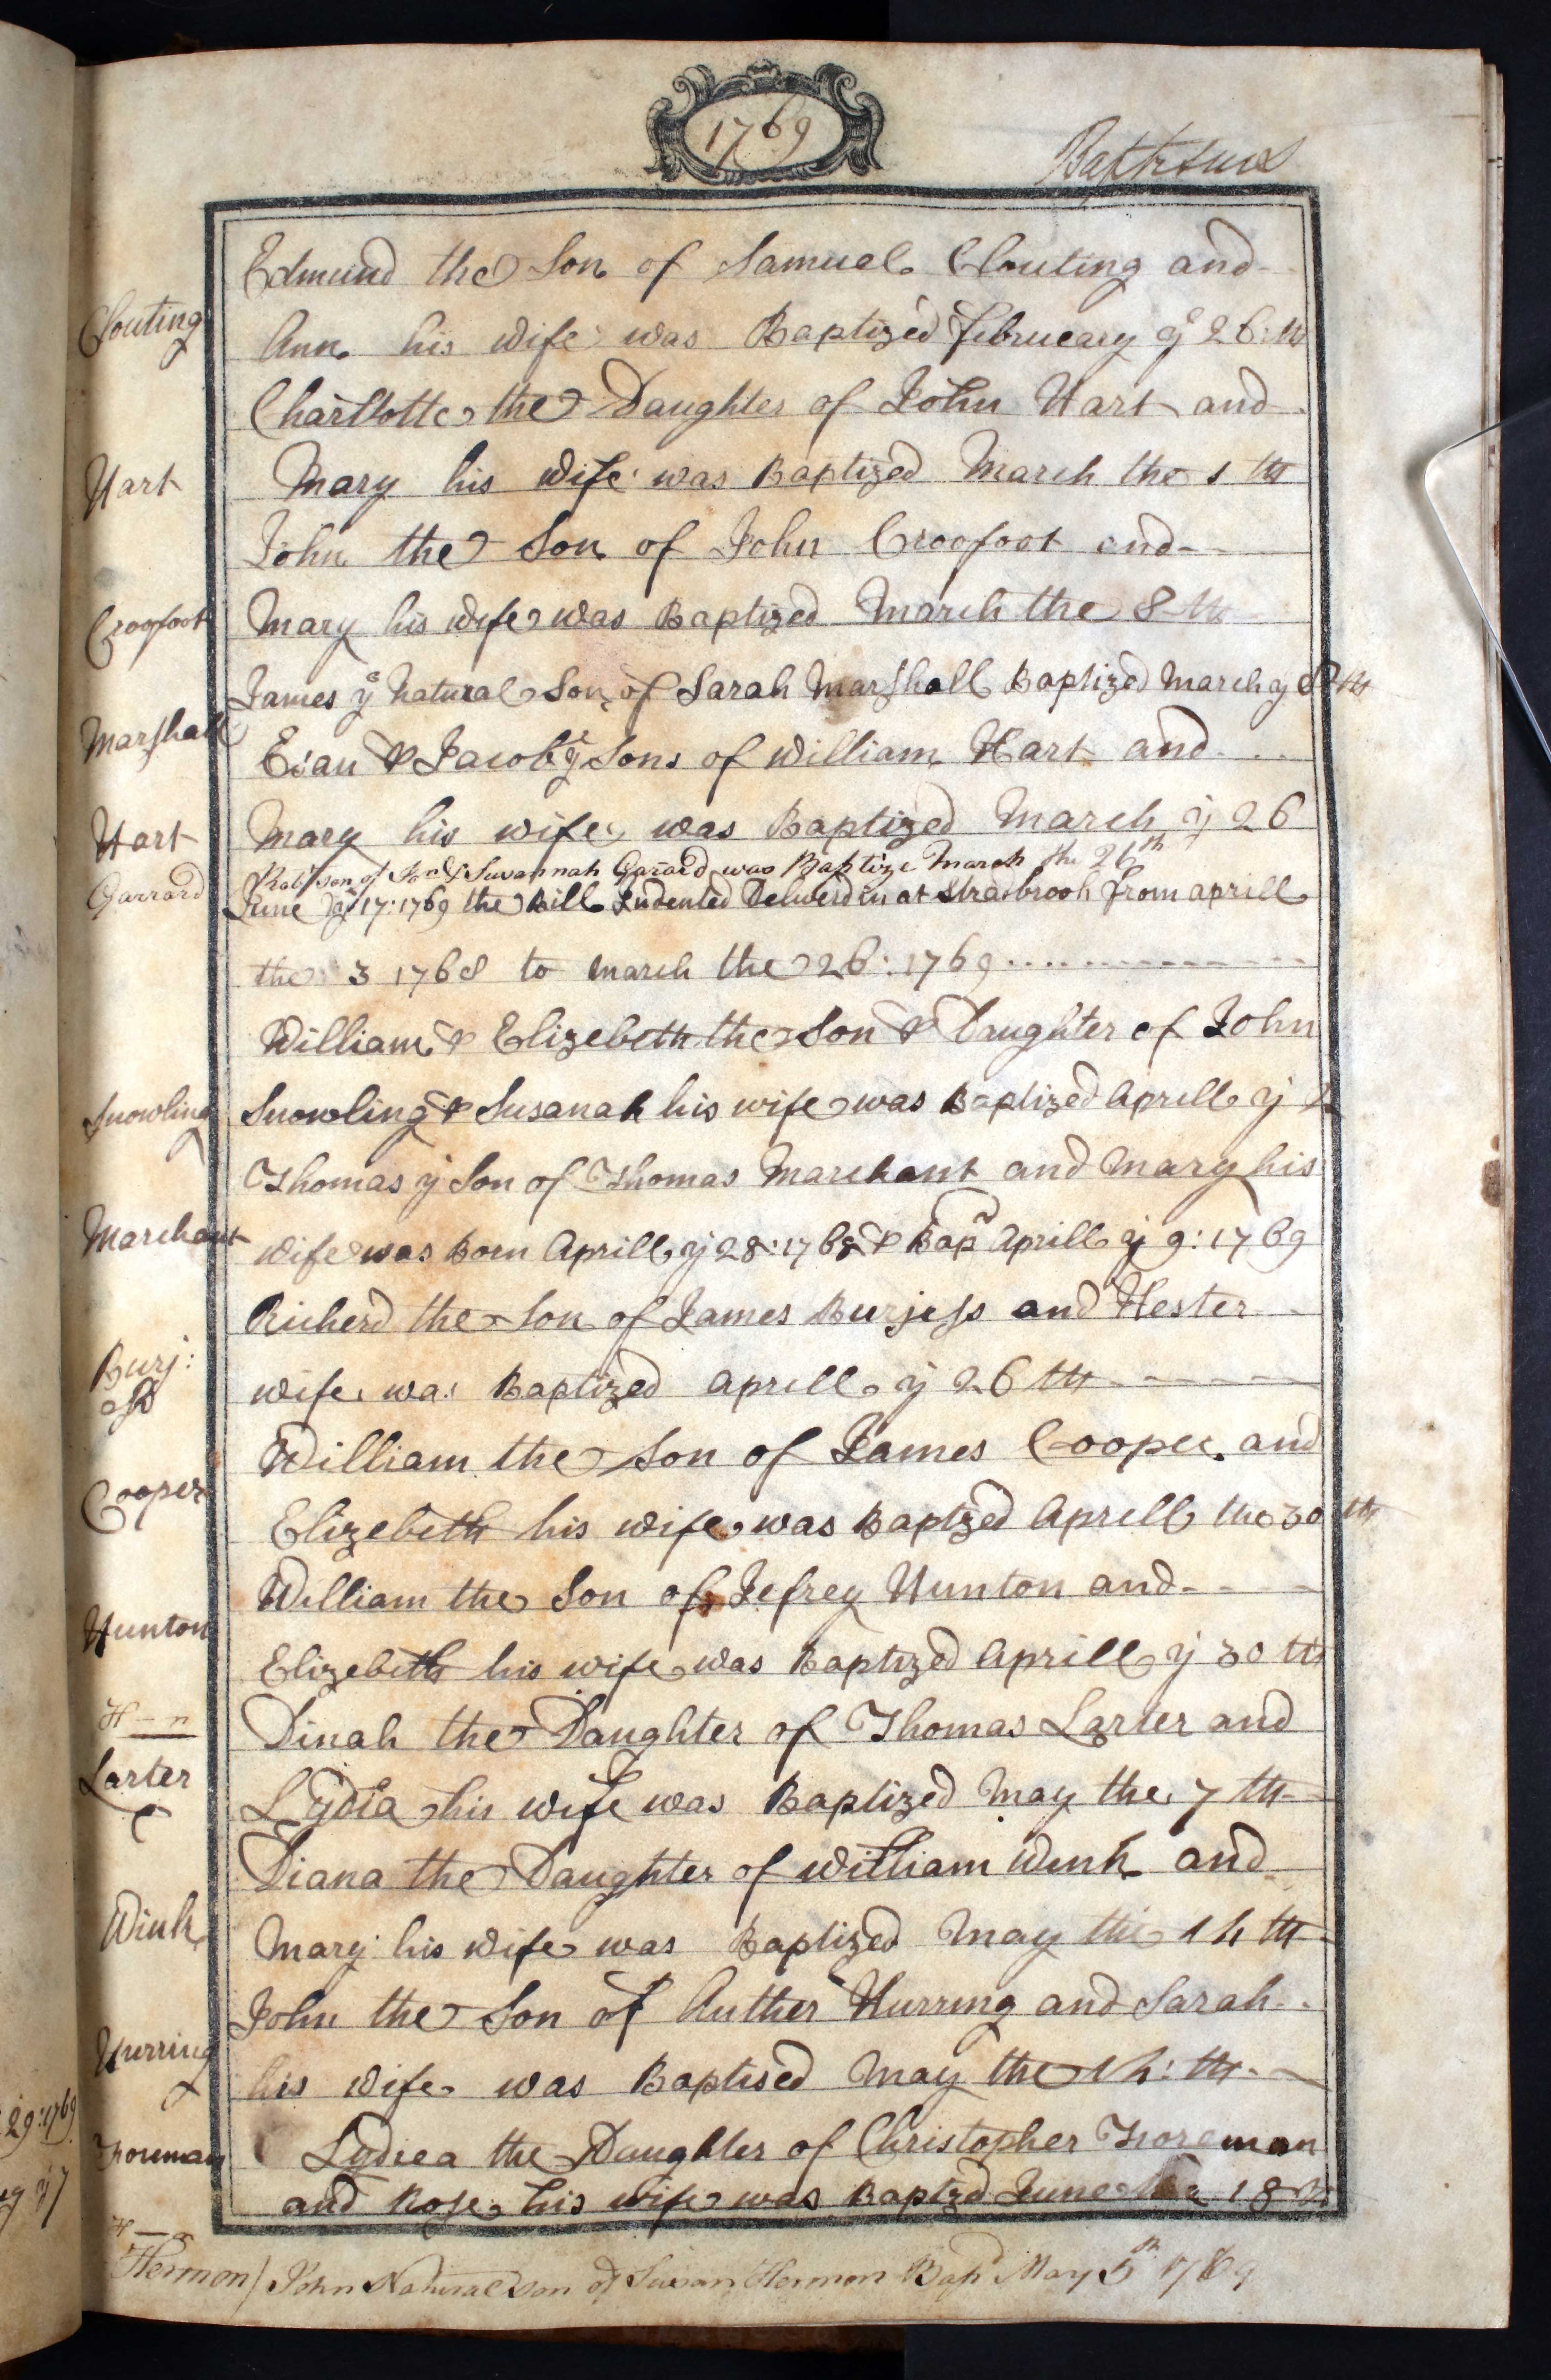 1769
Baptisms
Edmund the Son of Samuel Clouting and
Clouting
Ann his wife was Baptized Februeary ye 26:th
Charllotte the Daughter of John Hart and
Hart
Mary his wife was Baptized March the 1 th
John the Son of John Croofoot and
Croofoot
Mary his wife was Baptized March the 8 th
James ye Natural Son of Sarah Marshall Baptized March y 8 th
Marshall
Esau & Jacob ye Sons of William Hart and
Hart
Mary his wife was Baptized March y 26
Garrard
son of & Susannah Garard was Baptize March the 26th
June ye 17:1769 the Bill Indented Deliverd in at Stradbrooh from aprill
the 3 1768 to march the 26:1769
William & Elizebeth the Son & Daughter of John
Snowling
Snowling & Susanah his wife was Baptized Aprell y 2
Thomas y Son of Thomas Marchant and Mary his
Marchant
wife was Born Aprill y 28:1768 & Bapd Aprill y 9:1769
Richerd the Son of James Burjess and Hester
Burj:
ess
wife was Baptized aprell y 26 th
William the Son of James Cooper and
Cooper
Elizebeth his wife was Baptzed Aprell the 30 th
William the Son of Jefrey Hunton and
Hunton
Elizebeth his wife was Baptized Aprill y 30 th
H - n
Dinah the Daughter of Thomas Larter and
Larter
Lydia his wife was Baptized May the 7 th
Diana the Daughter of William Wink and
Wink
Mary his wife was Baptized May the 14 th
John the Son of Auther Hurring and Sarah
Hurring
his wife was Baptised May the 14:th
29:1769
Foreman
Lydiea the Daughter of Christopher Foreman
y 7
and Rose his wife was Baptzd June the 18 th
H - n
Hermon / John Natural son of Susan Hermon Bapd May 5th 1769